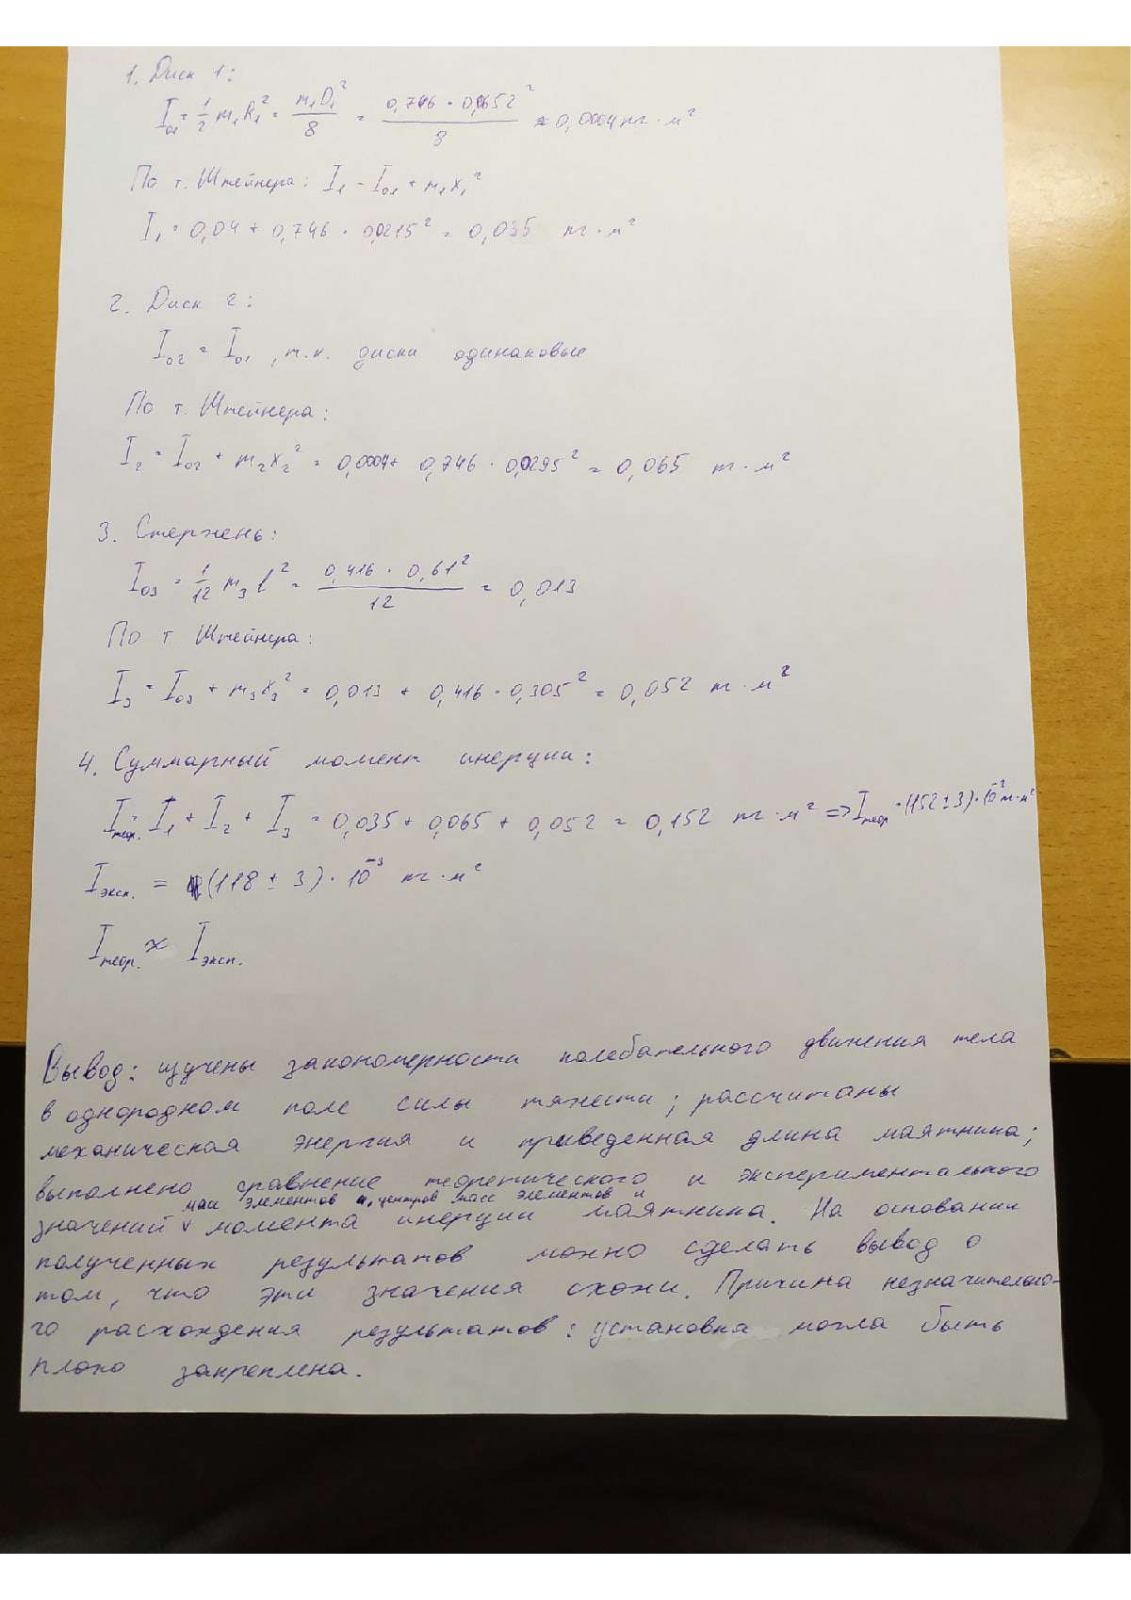 1. Диск 1:
I₀₁ = 1/2 m₁R₁² = m₁D₁²/8 = 0,746 · 0,0652²/8 ≈ 0,0004 кг · м²
По т. Штейнера: I₁ = I₀₁ + m₁x₁²
I₁ = 0,04 + 0,746 · 0,0215² = 0,035 кг · м²
2. Диск 2:
I₀₂ = I₀₁, т.к. диски одинаковые
По т. Штейнера:
I₂ = I₀₂ + m₂x₂² = 0,0004 + 0,746 · 0,0295² = 0,065 кг · м²
3. Стержень:
I₀₃ = 1/12 m₃ℓ² = 0,416 · 0,61²/12 = 0,013
По т. Штейнера:
I₃ = I₀₃ + m₃x₃² = 0,013 + 0,416 · 0,305² = 0,052 кг · м²
4. Суммарный момент инерции:
Iтеор. = I₁ + I₂ + I₃ = 0,035 + 0,065 + 0,052 = 0,152 кг · м² => Iтеор = (152 ± 3) · 10⁻² кг · м²
Iэксп. = (118 ± 3) · 10⁻³ кг · м²
Iтеор. ≈ Iэксп.
Вывод: изучены закономерности колебательного движения тела
в однородном поле силы тяжести; рассчитаны
механическая энергия и приведенная длина маятника;
выполнено сравнение теоретического и экспериментального
масс элементов и, центров масс элементов и
значений ∨ момента инерции маятника. На основании
полученных результатов можно сделать вывод о
том, что эти значения схожи. Причина незначительно-
го расхождения результатов: установка могла быть
плохо закреплена.